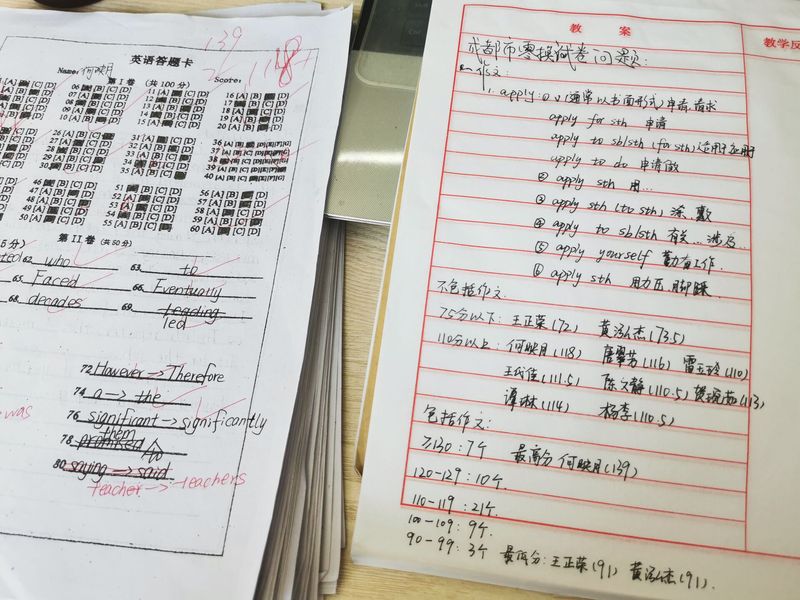 139
118
英语答题卡
Name: 何映月
第 I 卷 (共100分)
Score:
第 II 卷 (共50分)
62. who
63. to
65. Faced
66. Eventually
68. decades
69. leading
led
72 However -> Therefore
74 a -> the
76 significant -> significantly
them
78 promised
to
80 saying -> said
teacher -> teachers
was
教 案
教学反
成都市零换试卷问题:
一. 作文:
1. apply: ① v (通常以书面形式) 申请.请求
apply for sth 申请
apply to sb/sth (for sth) 适用于应用
apply to do 申请做
② apply sth 用...
③ apply sth (to sth) 涂, 敷
④ apply to sb/sth 有关...涉及..
⑤ apply yourself 勤奋工作.
⑥ apply sth 用力压.脚踩
不包括作文.
75分以下: 王正荣(72) 黄泓杰(73.5)
110分以上: 何映月(118) 唐翠芳(116) 雷玉玲(110)
王代佳(111.5) 陈久静(110.5) 贺琬茹(113)
谭琳(114) 杨李(110.5)
包括作文:
≥130: 7个 最高分 何映月(139)
120-129: 10个.
110-119: 21个
100-109: 9个.
90-99: 3个 最低分: 王正荣(91) 黄泓杰(91).